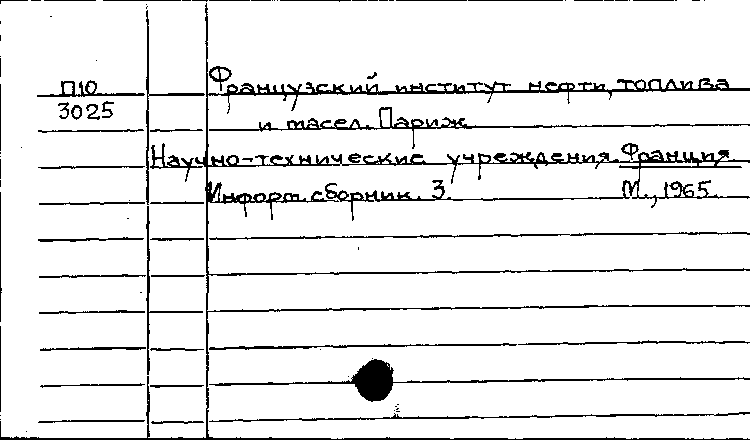 П10
3025
Французский институт нефти, топлива
и масел. Париж
Научно-технические учреждения. Франция
Информ. сборник. 3. М., 1965.